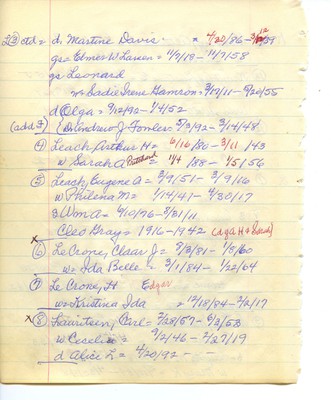 2③ ctd = d. Martine Davis = 4/20/86 - 3/12/39
gs = Elmer W Lauen = 11/7/18 - 11/7/58
gs Leonard
w = Sadie Irene Gamron = 3/17/11 - 9/20/55
d Olga = 9/12/92 - 1/4/52
(add 3) (Andrew J. Fowler 5/3/92 - 3/14/48
④ Leach Arthur H = 6/16/86 - 3/11/43
w Sarah A Pritchard = 1/4/88 - 1/5/56
⑤ Leach, Eugene A = 3/9/51 - 3/9/16
w Philena M = 1/14/41 - 4/30/17
s Wm A = 6/10/76 - 3/31/11
Cleo Gray = 1916 - 1942
x ⑥ LeCrone, Claar J = 7/3/81 - 1/5/60
w = Ida Belle = 3/1/84 - 1/22/64
⑦ Le Crone, H Edgar
w = Kristina Ida = 12/18/84 - 2/2/17
x ⑧ Lauritsen, Carl = 7/28/57 - 6/3/53
w Ceselie = 9/2/46 - 2/27/19
d Alice L = 4/20/92 - -